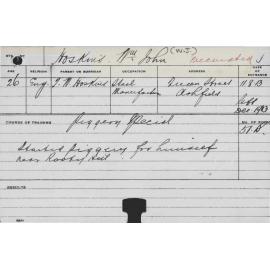 Hoskins Wm John (W.J.)
AGE RELIGION PARENT OR GUARDIAN OCCUPATION ADDRESS DATE OF ENTRANCE
26 Eng J. W Hoskins Steel Manufacturer Queen Street Ashfield 11.8.13
left Dec 1913
COURSE OF TRAINING
Piggery Special
Started piggery for himself
near Rooty Hill
RESULTS